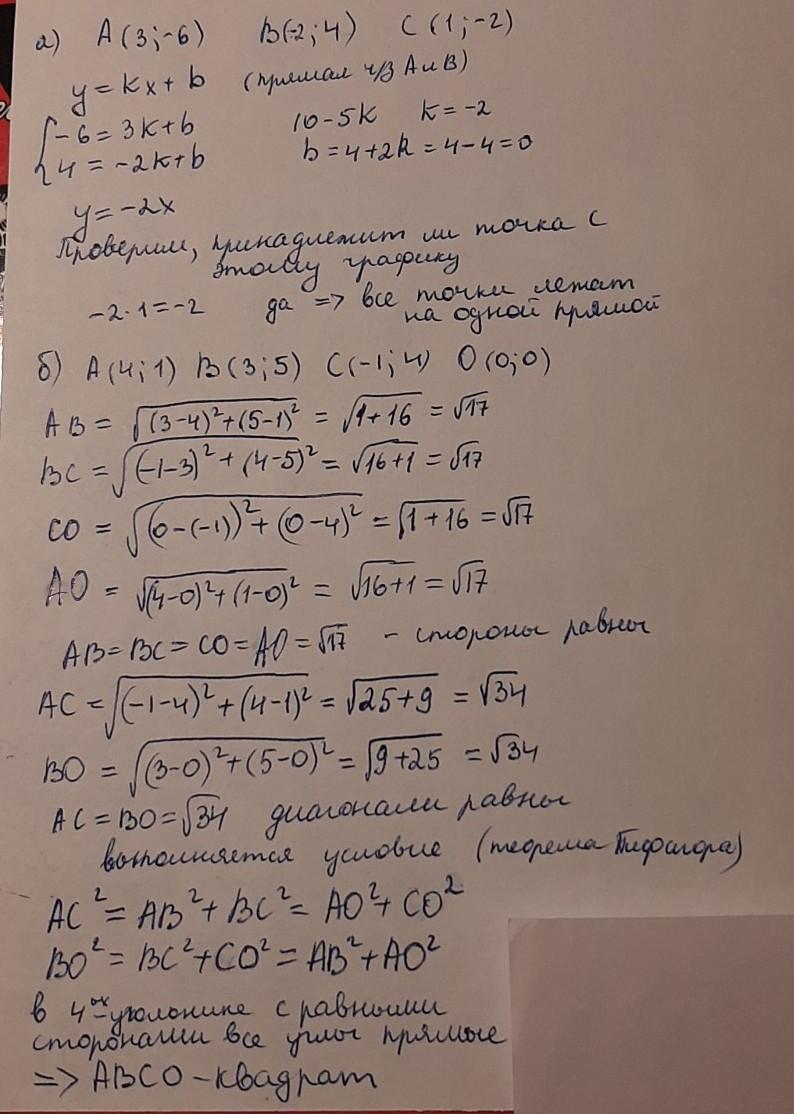 а) A (3; -6) B(-2; 4) C (1; -2)
y = kx + b (прямая ч/з A и B)
{ -6 = 3k+b 10 - 5k k = -2
4 = -2k+b b = 4+2k = 4-4 = 0
y = -2x
Проверим, принадлежит ли точка C
этому графику
-2·1 = -2 да => все точки лежат
на одной прямой
б) A(4; 1) B(3; 5) C(-1; 4) O(0; 0)
AB = √((3-4)²+(5-1)²) = √(1+16) = √17
BC = √((-1-3)²+(4-5)²) = √(16+1) = √17
CO = √((0-(-1))²+(0-4)²) = √(1+16) = √17
AO = √((4-0)²+(1-0)²) = √(16+1) = √17
AB = BC = CO = AO = √17 - стороны равны
AC = √((-1-4)²+(4-1)²) = √(25+9) = √34
BO = √((3-0)²+(5-0)²) = √(9+25) = √34
AC = BO = √34 диагонали равны
выполняется условие (теорема Пифагора)
AC² = AB² + BC² = AO² + CO²
BO² = BC² + CO² = AB² + AO²
в 4-ух угольнике с равными
сторонами все углы прямые
=> ABCO - квадрат